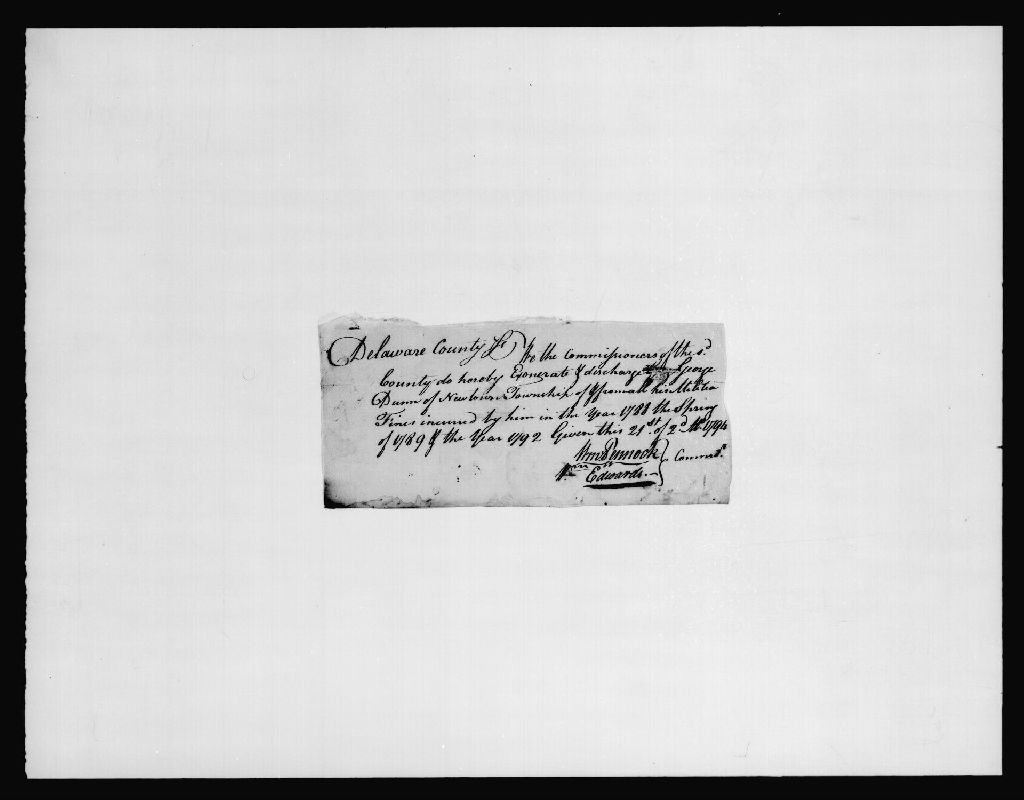 Delaware County Ss We the Commissioners of the sd
County do hereby Exonerate & discharge George
Dunn of Newtown Township of & from all his Militia
Fines incurred by him in the Year 1788 the Spring
of 1789 & the Year 1792. Given this 21st of 2d Mo 1794
Wm Pennock
Edwards Commrs